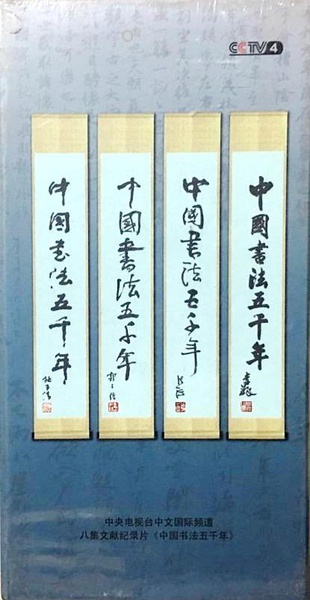 CCTV4
中國書法五千年
中国书法五千年
中國書法五千年
中国书法五千年
中央电视台中文国际频道
八集文献纪录片《中国书法五千年》